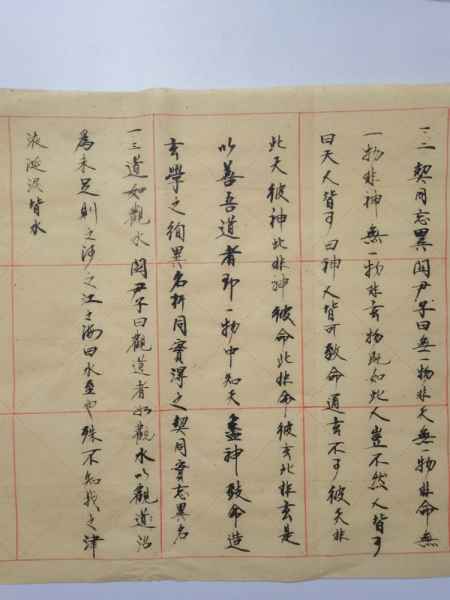 一二 契同忘異 関尹子曰無一物非天無一物非命無
一物非神無一物非玄物既如此人豈不然人皆可
曰天人皆可曰神人皆可致命通玄不可彼天非
此天彼神此非神彼命此非命彼玄此非玄是
以善吾道者即一物中知天盡神致命造
玄學之徇異名析同實得之契同實忘異名
一三道如觀水 関尹子曰觀道者如觀水以觀道沼
為未足則之河之江之海曰水至也殊不知我之津
液涎淚皆水